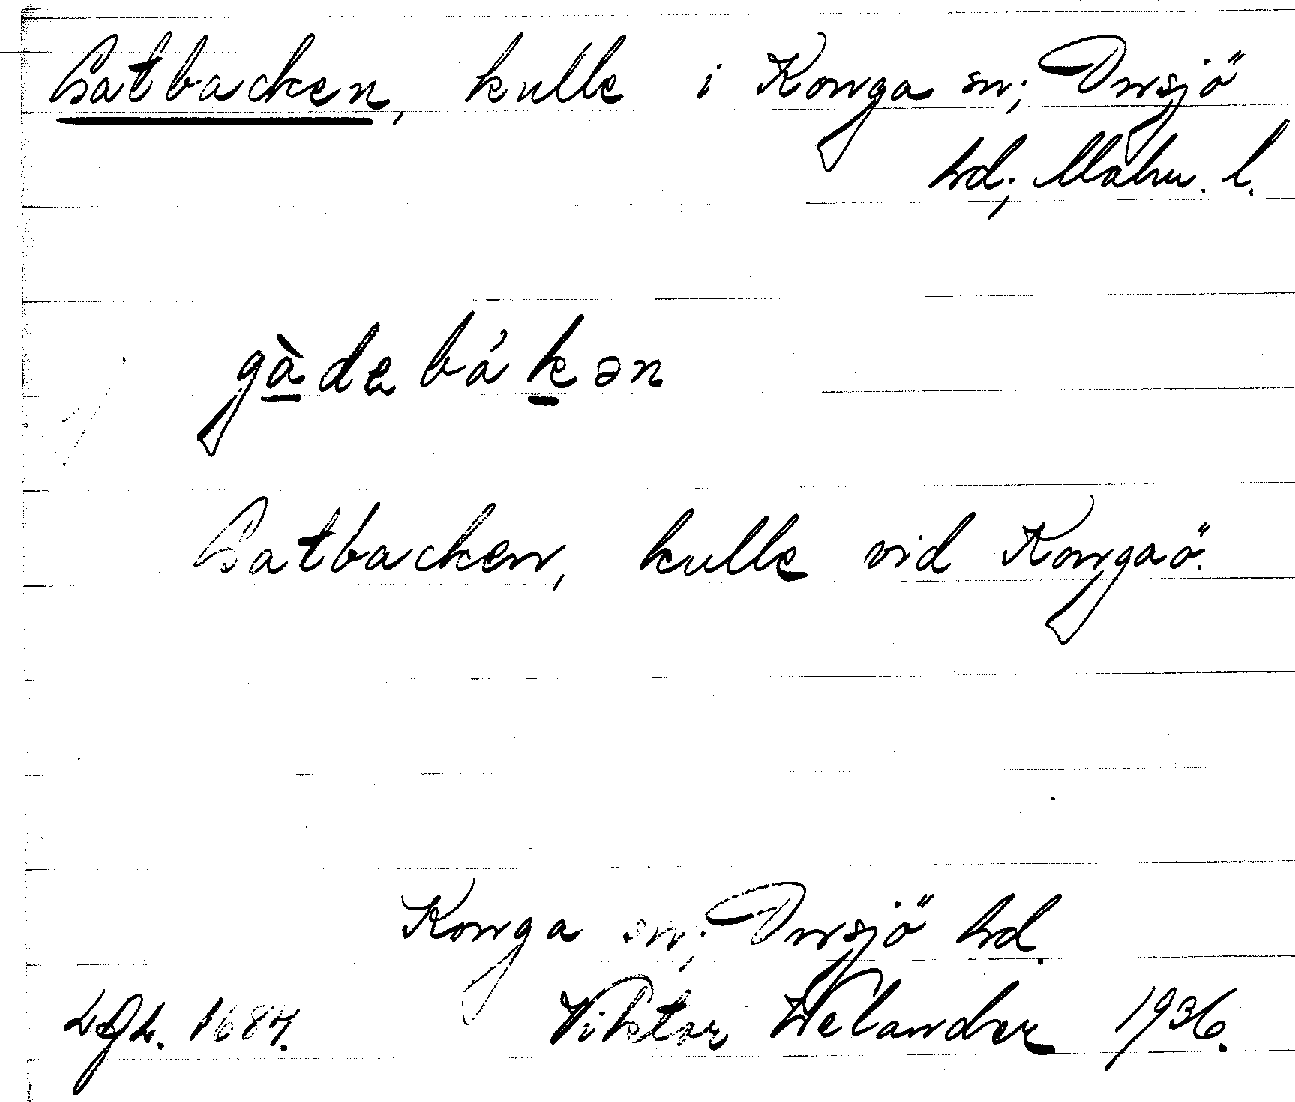 Gatbacken, kulle i Konga sn; Onsjö
hd; Malm. l.
gàdebákən
Gatbacken, kulle vid Kongaö.
Konga sn; Onsjö hd.
Viktor Welander 1936.